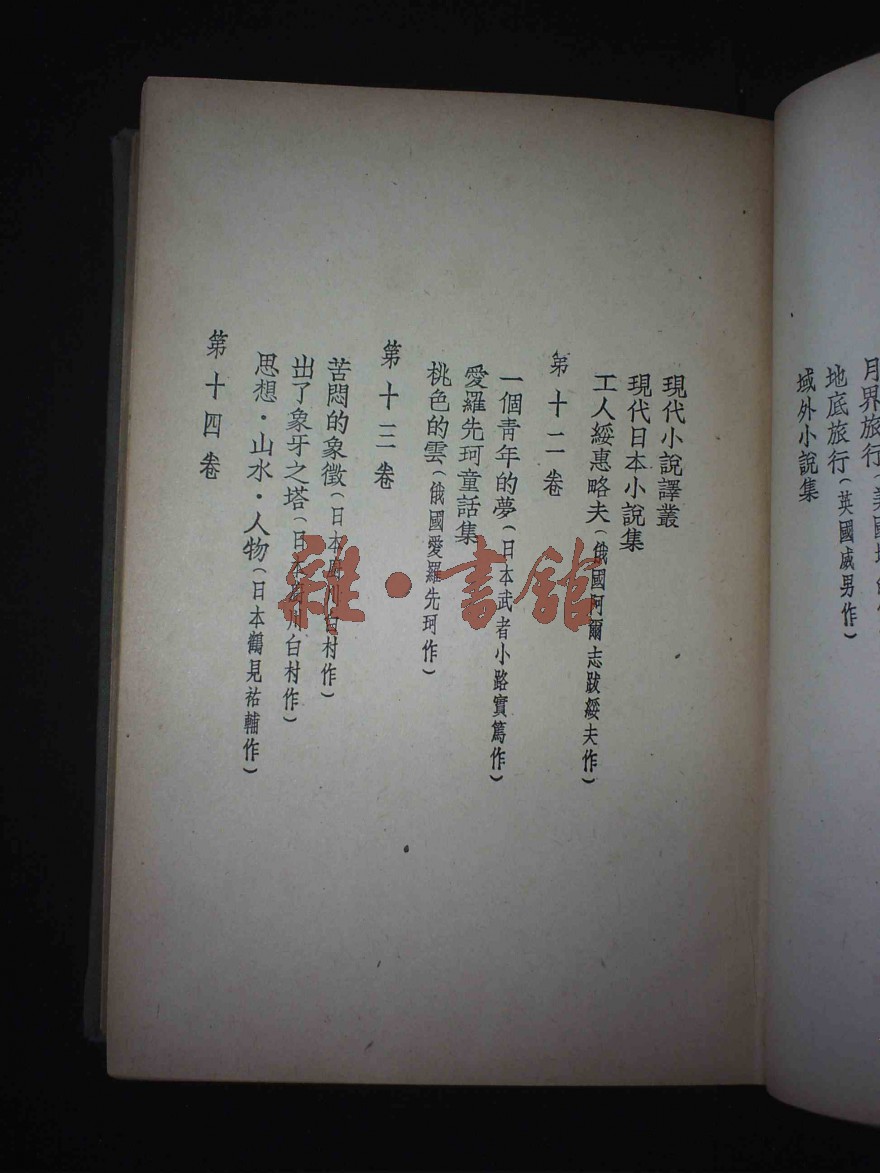 月界旅行
地底旅行(英國威男作)
域外小說集
現代小說譯叢
現代日本小說集
工人綏惠略夫(俄國阿爾志跋綏夫作)
第十二卷
一個青年的夢(日本武者小路實篤作)
愛羅先珂童話集
桃色的雲(俄國愛羅先珂作)
第十三卷
苦悶的象徵(日本厨川白村作)
出了象牙之塔(日本厨川白村作)
思想·山水·人物(日本鶴見祐輔作)
第十四卷
雜·書館